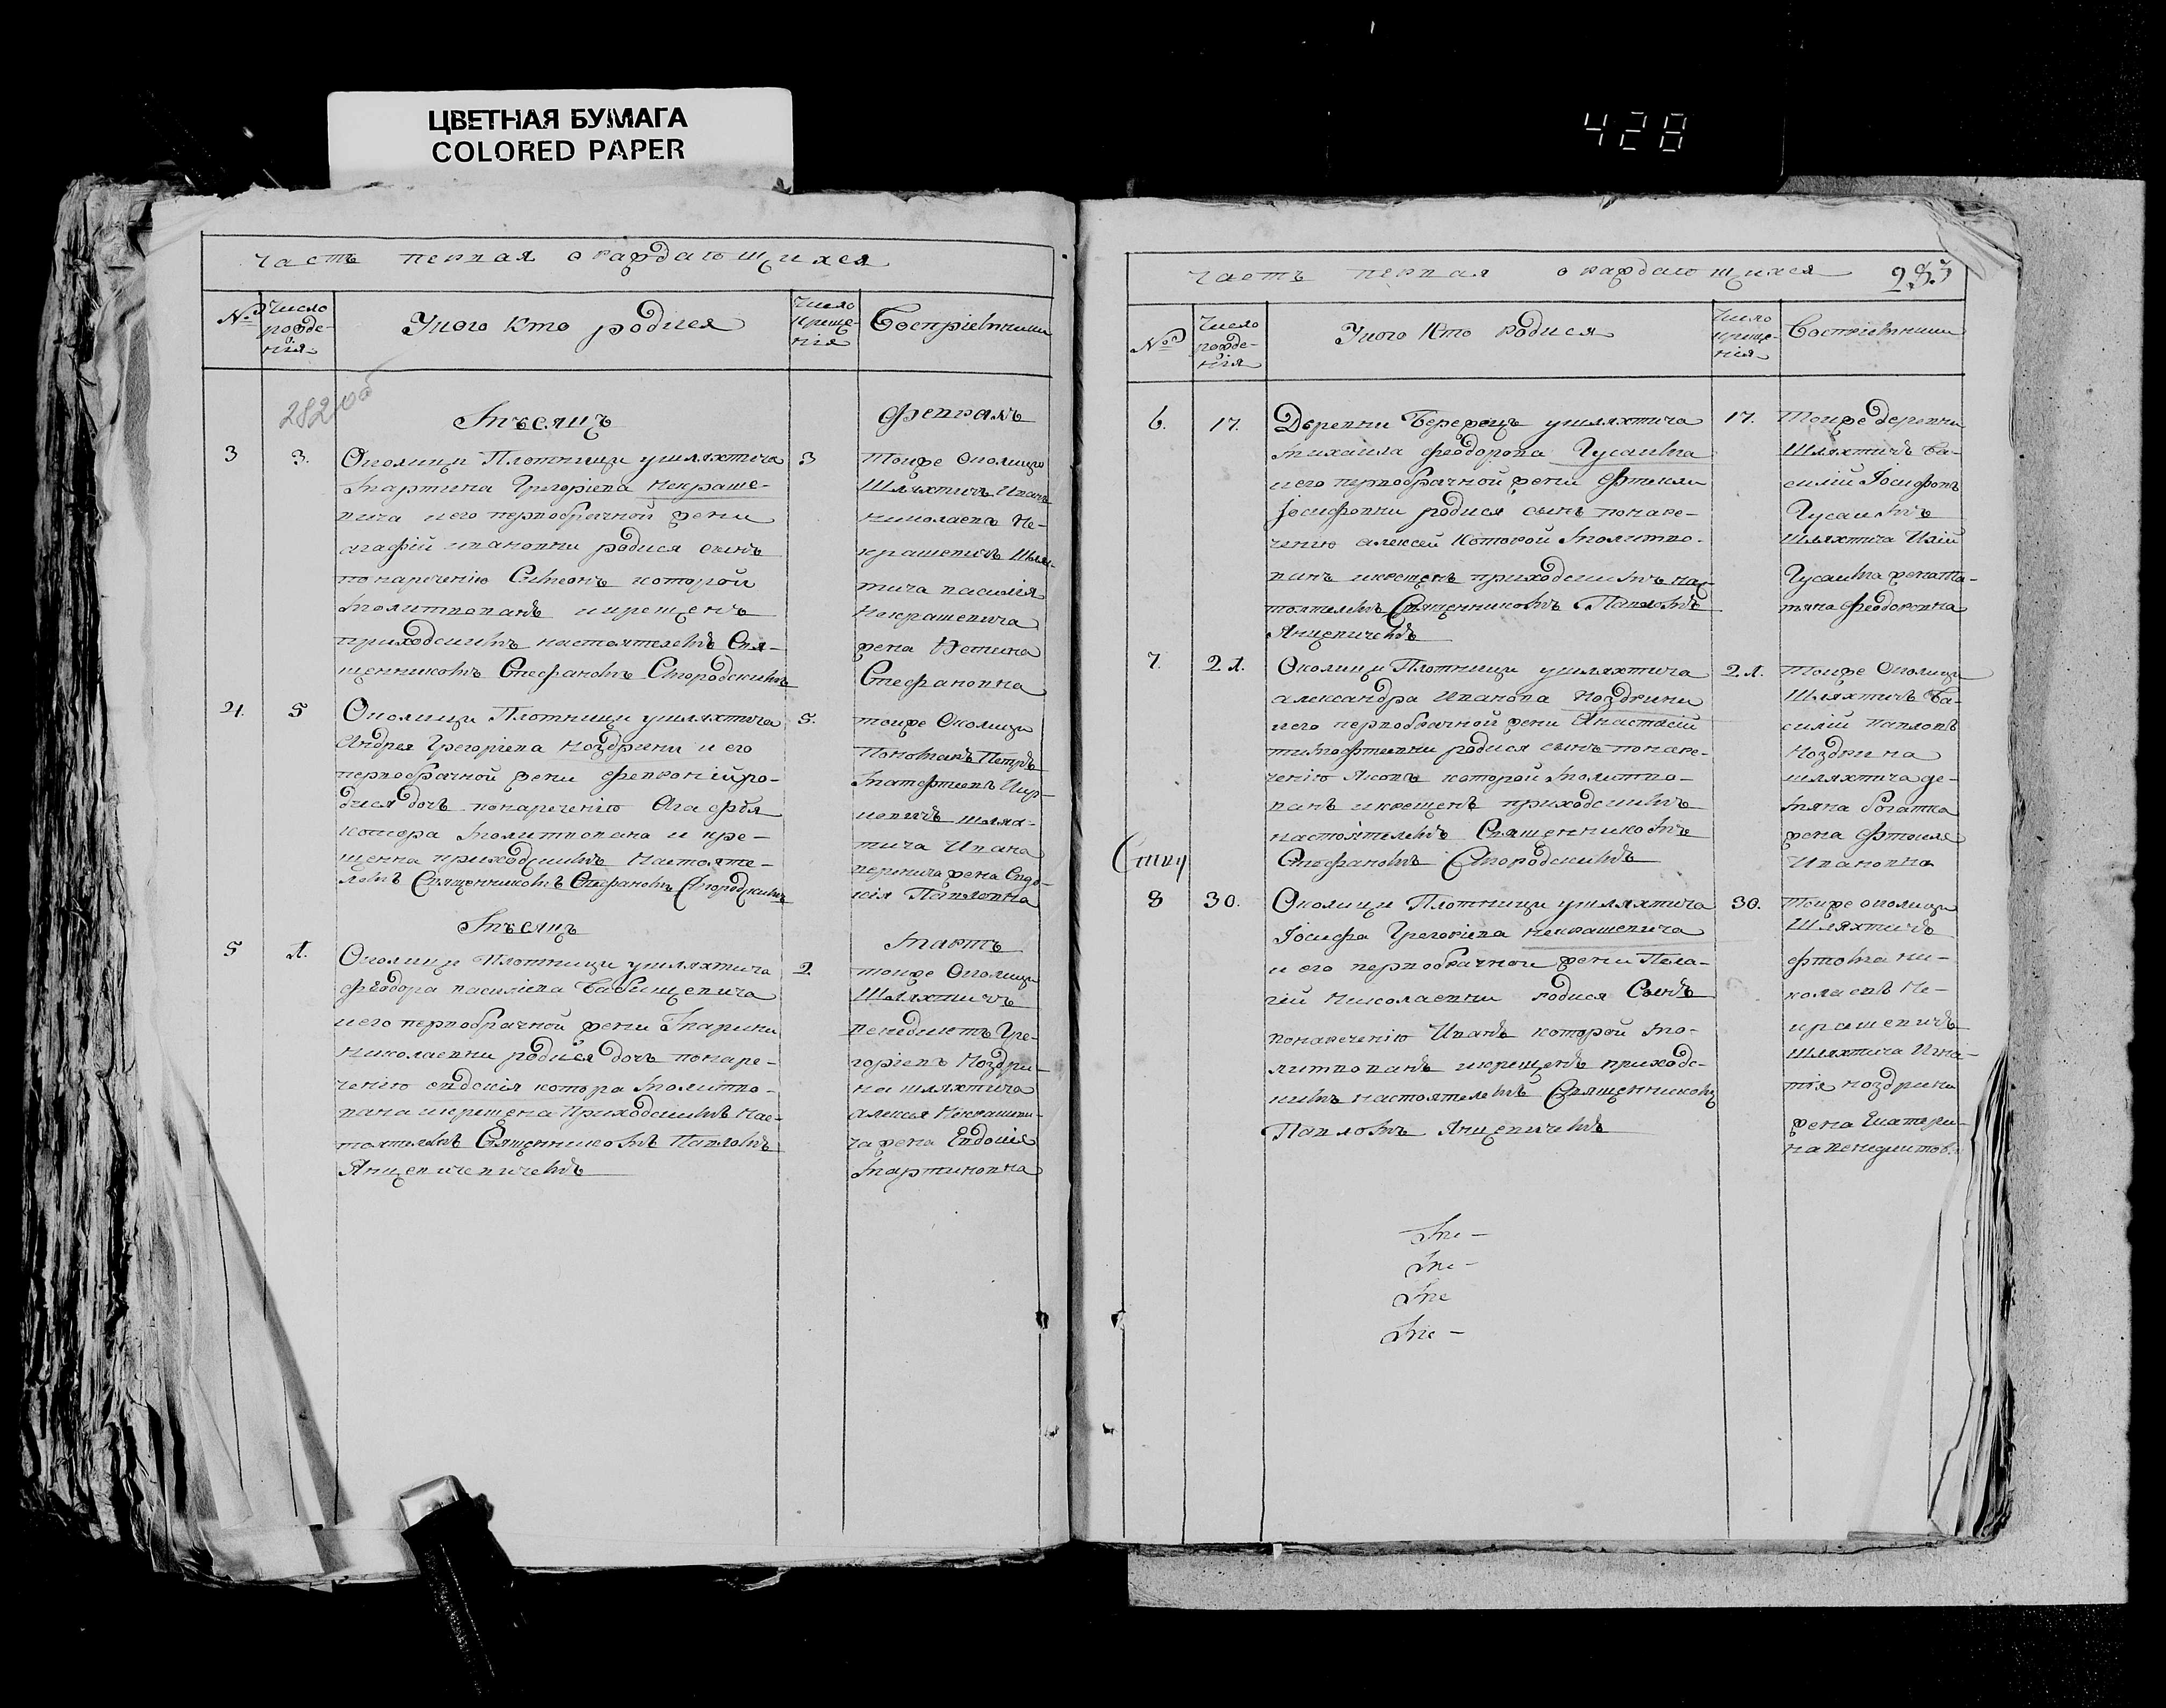 ЦВЕТНАЯ БУМАГА
COLORED PAPER
428
часть первая о раждающихся
№
Число рожде-нія
У кого кто родися
Число креще-нія
Воспріемники
282 об
Мѣсяцъ
Февраль
3
3.
Околицы Плотницы у шляхтича
Мартина Григоріева Некраше-
вича и его первобрачной жены
Агафіи Ивановны родися сынъ
по нареченію Симеонъ которой
молитвованъ и крещенъ
приходскимъ настоятелемъ Свя-
щенникомъ Стефаномъ Сгородскимъ
3
тоиже Околицы
Шляхтичъ Иванъ
Николаевъ Не-
крашевичъ Шлях-
тича Василія
Некрашевича
жена
Стефановна
4.
5
Околицы Плотницы у шляхтича
Андрея Григоріева Ноздрини и его
первобрачной жены Февроніи ро-
дися дочь по нареченію Агафія
котора молитвована и кре-
щенна приходскимъ Настояте-
лемъ Священникомъ Стефаномъ Сгородскимъ
5.
тоиже Околицы
Пономарь Петръ
Матфеевъ
шлях-
тича Ивана
жена Евдо-
кія Павловна
Мѣсяцъ
Мартъ
5
1.
Околицы Плотницы у шляхтича
Феодора Василіева Бабищевича
и его первобрачной жены Марины
Николаевны родися дочь по наре-
ченію Евдокія котора молитво-
вана и крещена Приходскимъ Нас-
тоятелемъ Священникомъ Павломъ
Янцевичевичемъ
2
тоиже Околицы
Шляхтичъ
Венедиктъ Гре-
горіевъ Ноздри-
на шляхтича
Алексея Некрашеви-
ча жена Евдокія
Мартиновна
часть первая о раждающихся
283
№
Число рожде-нія
У кого кто родися
Число креще-нія
Воспріемники
6.
17.
Деревни Бережцъ у шляхтича
Михаила Феодорова Гусаима
и его первобрачной жены Фтекли
Іосифовны родися сынъ по наре-
ченію Алексей которой молитво-
ванъ и крещенъ приходскимъ нас-
тоятелемъ Священникомъ Павломъ
Янцевичемъ
17.
тоиже деревни
Шляхтичъ Ва-
силій Іосифовъ
Гусаимъ
шляхтича Иліи
Гусаима жена Та-
тяна Феодоровна
7.
21.
Околицы Плотницы у шляхтича
Александра Иванова Ноздрини
и его первобрачной жены Анастасіи
Тимофтеевны родися сынъ по наре-
ченію Яковъ которой молитво-
ванъ и крещенъ приходскимъ
настоятелемъ Священникомъ
Стефаномъ Сгородскимъ
21.
тоиже Околицы
Шляхтичъ Ва-
силій Павловъ
Ноздрина
шляхтича де-
мяна Богатка
жена Фтекля
Ивановна
8
30.
Околицы Плотницы у шляхтича
Іосифа Григоріева Некрашевича
и его первобрачной жены Пела-
гіи Николаевны родися Сынъ
по нареченію Иванъ которой мо-
литвованъ и крещенъ приходс-
кимъ настоятелемъ Священникомъ
Павломъ Янцевичемъ
30.
тоиже околицы
Шляхтичъ
Фтома Ни-
колаевъ Не-
крашевичъ
шляхтича Игна-
тія Ноздрина
жена Екатери-
на Венедиктов.